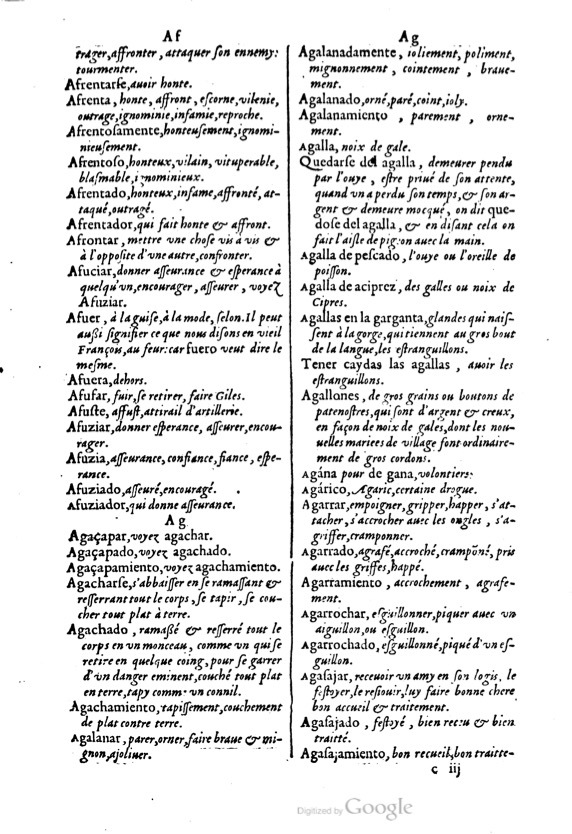 Af
trager,affronter, attaquer son ennemy:
tourmenter.
Afrentarſe,auoir honte.
Afrenta, honte, affront, eſcorne,vilenie,
outrage,ignominie,infamie,reproche.
Afrentoſamente,honteuſement,ignomi-
nieuſement.
Afrentoſo,honteux,vilain, vituperable,
blaſmable,ignominieux.
Afrentado,honteux,infame,affronté, at-
taqué,outragé.
Afrentador,qui fait honte & affront.
Afrontar, mettre vne choſe vis à vis &
à l'oppoſite d'vne autre,confronter.
Afuciar,donner aſſeurance & eſperance à
quelqu'vn,encourager, aſſeurer, voyez
Afuziar.
Afuer, à la guiſe,à la mode, ſelon.Il peut
auſſi ſignifier ce que nous diſons en vieil
François,au feur:car fuero veut dire le
meſme.
Afuera,dehors.
Afufar, fuir,ſe retirer, faire Giles.
Afuſte, affuſt,attirail d'artillerie.
Afuziar,donner eſperance, aſſeurer,encou-
rager.
Afuzia,aſſeurance, confiance,fiance, eſpe-
rance.
Afuziado,aſſeuré,encouragé.
Afuziador,qui donne aſſeurance.
Ag
Agaçapar,voyez agachar.
Agaçapado,voyez agachado.
Agaçapamiento,voyez agachamiento.
Agacharſe,s'abbaiſſer en ſe ramaſſant &
reſſerrant tout le corps, ſe tapir, ſe cou-
cher tout plat à terre.
Agachado, ramaßé & reſſerré tout le
corps en vn monceau, comme vn qui ſe
retire en quelque coing, pour ſe garrer
d'vn danger eminent,couché tout plat
en terre,tapy comm· vn connil.
Agachamiento,tapiſſement,couchement
de plat contre terre.
Agalanar, parer,orner, faire braue & mi-
gnon,ajoliuer.
Ag
Agalanadamente, ioliement, poliment,
mignonnement, cointement, braue-
ment.
Agalanado,orné,paré,coint,ioly.
Agalanamiento, parement, orne-
ment.
Agalla,noix de gale.
Quedarſe del agalla, demeurer pendu
par l'ouye, eſtre priué de ſon attente,
quand vn a perdu ſon temps,& ſon ar-
gent & demeure mocqué, on dit que-
doſe del agalla, & en diſant cela on
fait l'aiſle de pignon auec la main.
Agalla de peſcado, l'ouye ou l'oreille de
poiſſon.
Agalla de aciprez, des galles ou noix de
Cipres.
Agallas en la garganta,glandes qui naiſ-
ſent à la gorge,qui tiennent au gros bout
de la langue,les eſtranguillons.
Tener caydas las agallas, auoir les
eſtranguillons.
Agallones, de gros grains ou boutons de
patenoſtres,qui ſont d'argent & creux,
en façon de noix de gales,dont les nou-
uelles mariees de village font ordinaire-
ment de gros cordons.
Agána pour de gana,volontiers:
Agárico, Agaric,certaine drogue.
Agarrar,empoigner,gripper,happer, s'at-
tacher,s'accrocher auec les ongles, s'a-
griffer,cramponner.
Agarrado,agrafé,accroché,crampõné,pris
auec les griffes,happé.
Agarramiento, accrochement, agrafe-
ment.
Agarrochar, eſguillonner,piquer auec vn
aiguillon,ou eſguillon.
Agarrochado,eſguillonné,piqué d'vn eſ-
guillon.
Agaſajar,receuoir vn amy en ſon logis, le
feſtoyer,le reſiouir,luy faire bonne chere
bon accueil & traitement.
Agaſajado, feſtoyé, bien receu & bien
traitté.
Agaſajamiento,bon recueil,bon traitte-
c iij
Digitized by Google